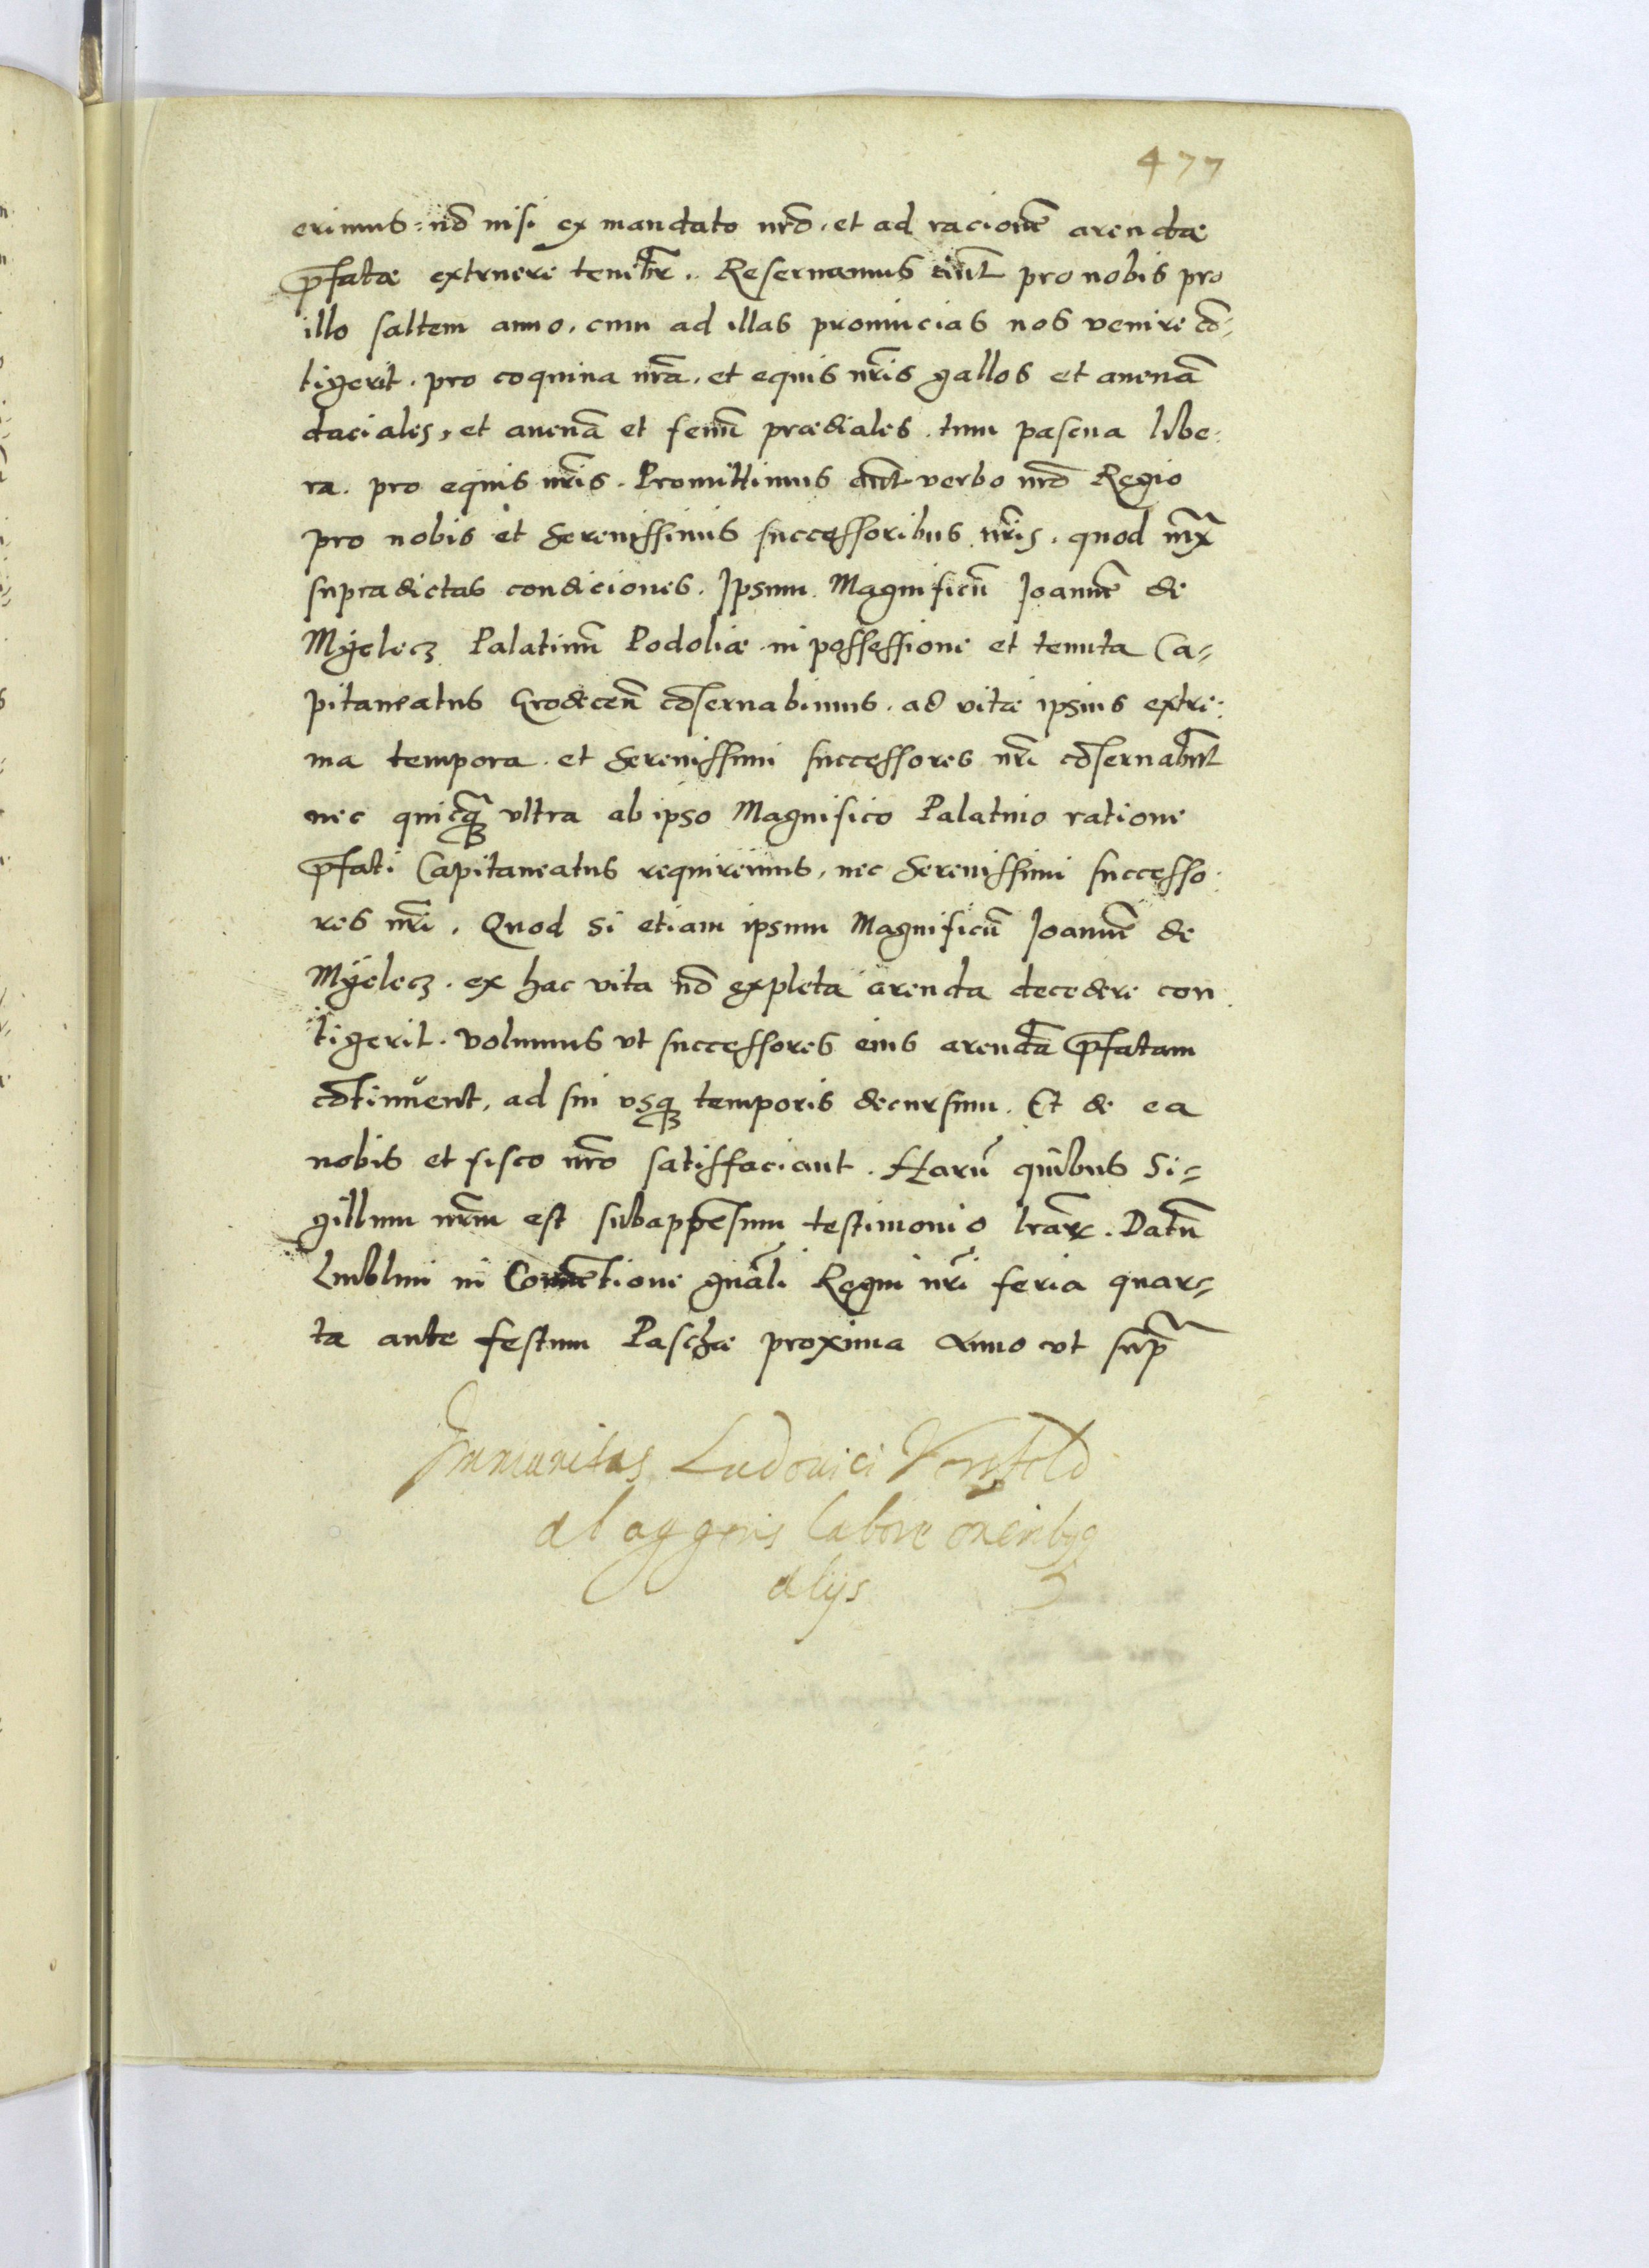 477
erimus: nō nisi ex mandato nrō. et ad racionē arendæ
p̄fatæ extruere tenebr̄. Reseruamus aūt pro nobis pro
illo saltem anno, cum ad illas prouincias nos venire cō-
tigerit. pro coquina nrā. et equis nrīs gallos et auenā
daciales, et auenā et fenū prædiales. tum pascua libe-
ra. pro equis nrīs. Promittimus aūt verbo nrō Regio
pro nobis et Serenissimis successoribus nrīs. quod
supradictas condiciones. Ipsum Magnificū Joannē de
Mÿelecz Palatinū Podoliæ in possessione et tenuta Ca-
pitaneatus Grodecen̄ cōseruabimus. ad vitæ ipsius extre-
ma tempora. et Serenissimi successores nrī cōseruabūt
nec quicq̄ ultra ab ipso Magnifico Palatino ratione
p̄fati Capitaneatus requiremus, nec Serenissimi successo-
res nrī. Quod si etiam ipsum Magnificū Joannē de
Mÿelecz. ex hac vita nō expleta arenda decedere con
tigerit. volumus vt successores eius arendā p̄fatam
cōtinuent, ad sui vsq temporis decursum. Et de ea
nobis et fisco nrō satisfaciant. Harū quibus Si-
gillum nrm̄ est subappēsum testimonio lrār. Datū
Lublini in Conuētione gnāli Regni nrī feria quar-
ta ante festum Paschæ proxima Anno vt sup̄
Immunitas Ludouici
ab aggeris labore
alijs